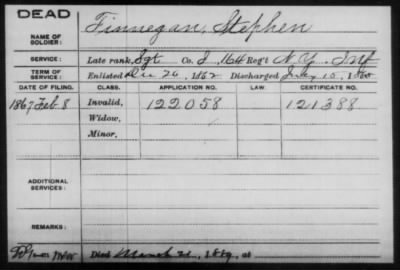 DEAD
NAME OF SOLDIER: Finnegan, Stephen
SERVICE: Late rank, Sgt Co. I, 164 Reg't N.Y. Inf
TERM OF SERVICE: Enlisted 26, 1862 Discharged July 15, 1865
DATE OF FILING. CLASS. APPLICATION NO. LAW. CERTIFICATE NO.
1867 Feb 8 Invalid, 122058 121388
Widow,
Minor,
ADDITIONAL SERVICES:
REMARKS:
Died March 21, 1889, at